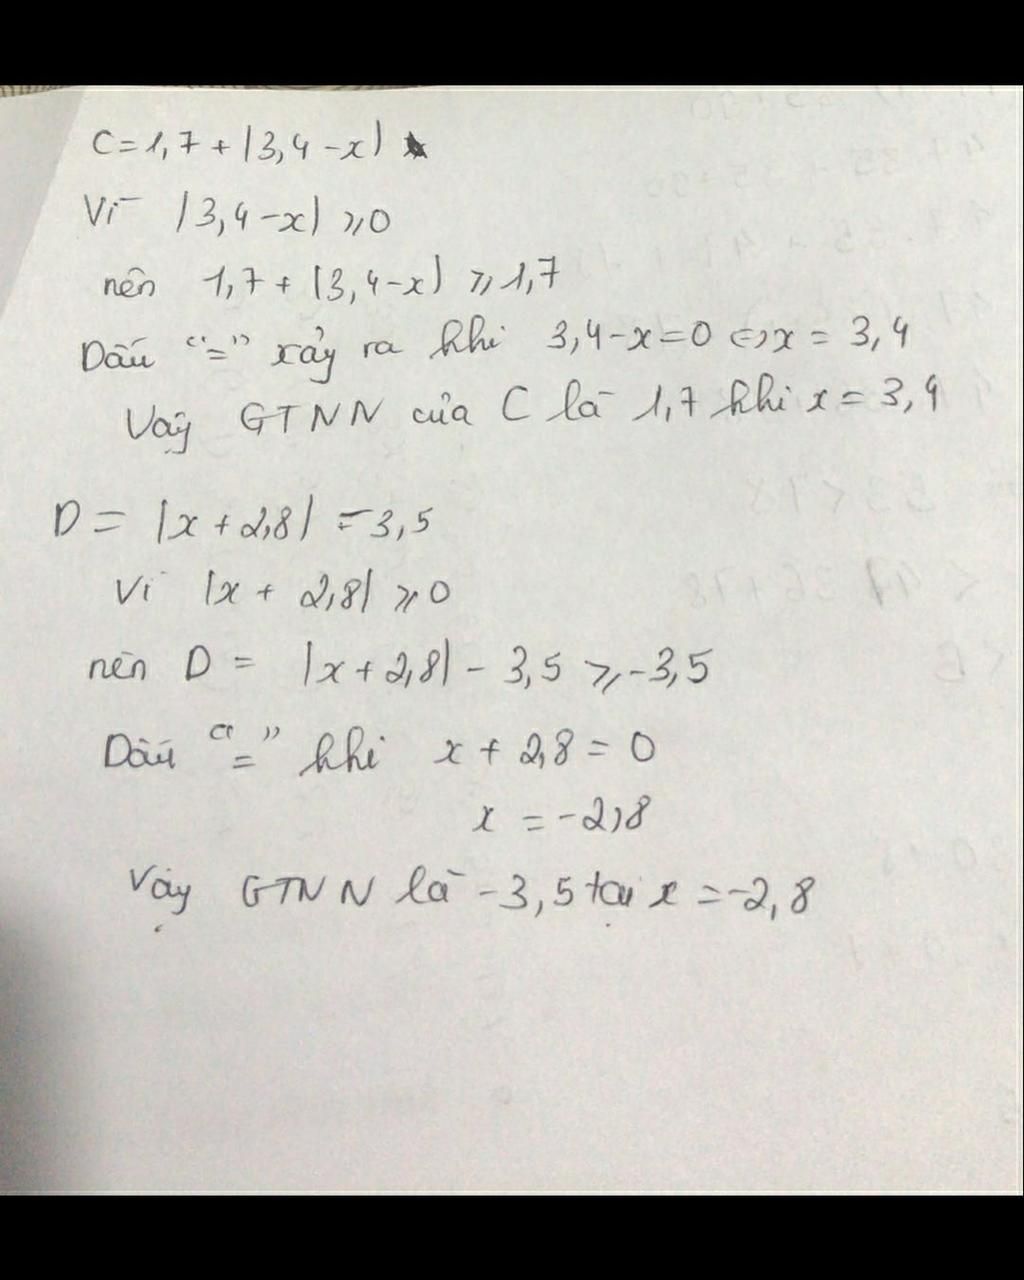 C = 1,7 + |3,4 - x|
Vì |3,4 - x| ⩾ 0
nên 1,7 + |3,4 - x| ⩾ 1,7
Dấu "=" xảy ra khi 3,4 - x = 0 ⇔ x = 3,4
Vậy GTNN của C là 1,7 khi x = 3,4
D = |x + 2,8| - 3,5
Vì |x + 2,8| ⩾ 0
nên D = |x + 2,8| - 3,5 ⩾ -3,5
Dấu "=" khi x + 2,8 = 0
x = -2,8
Vậy GTNN là -3,5 tại x = -2,8